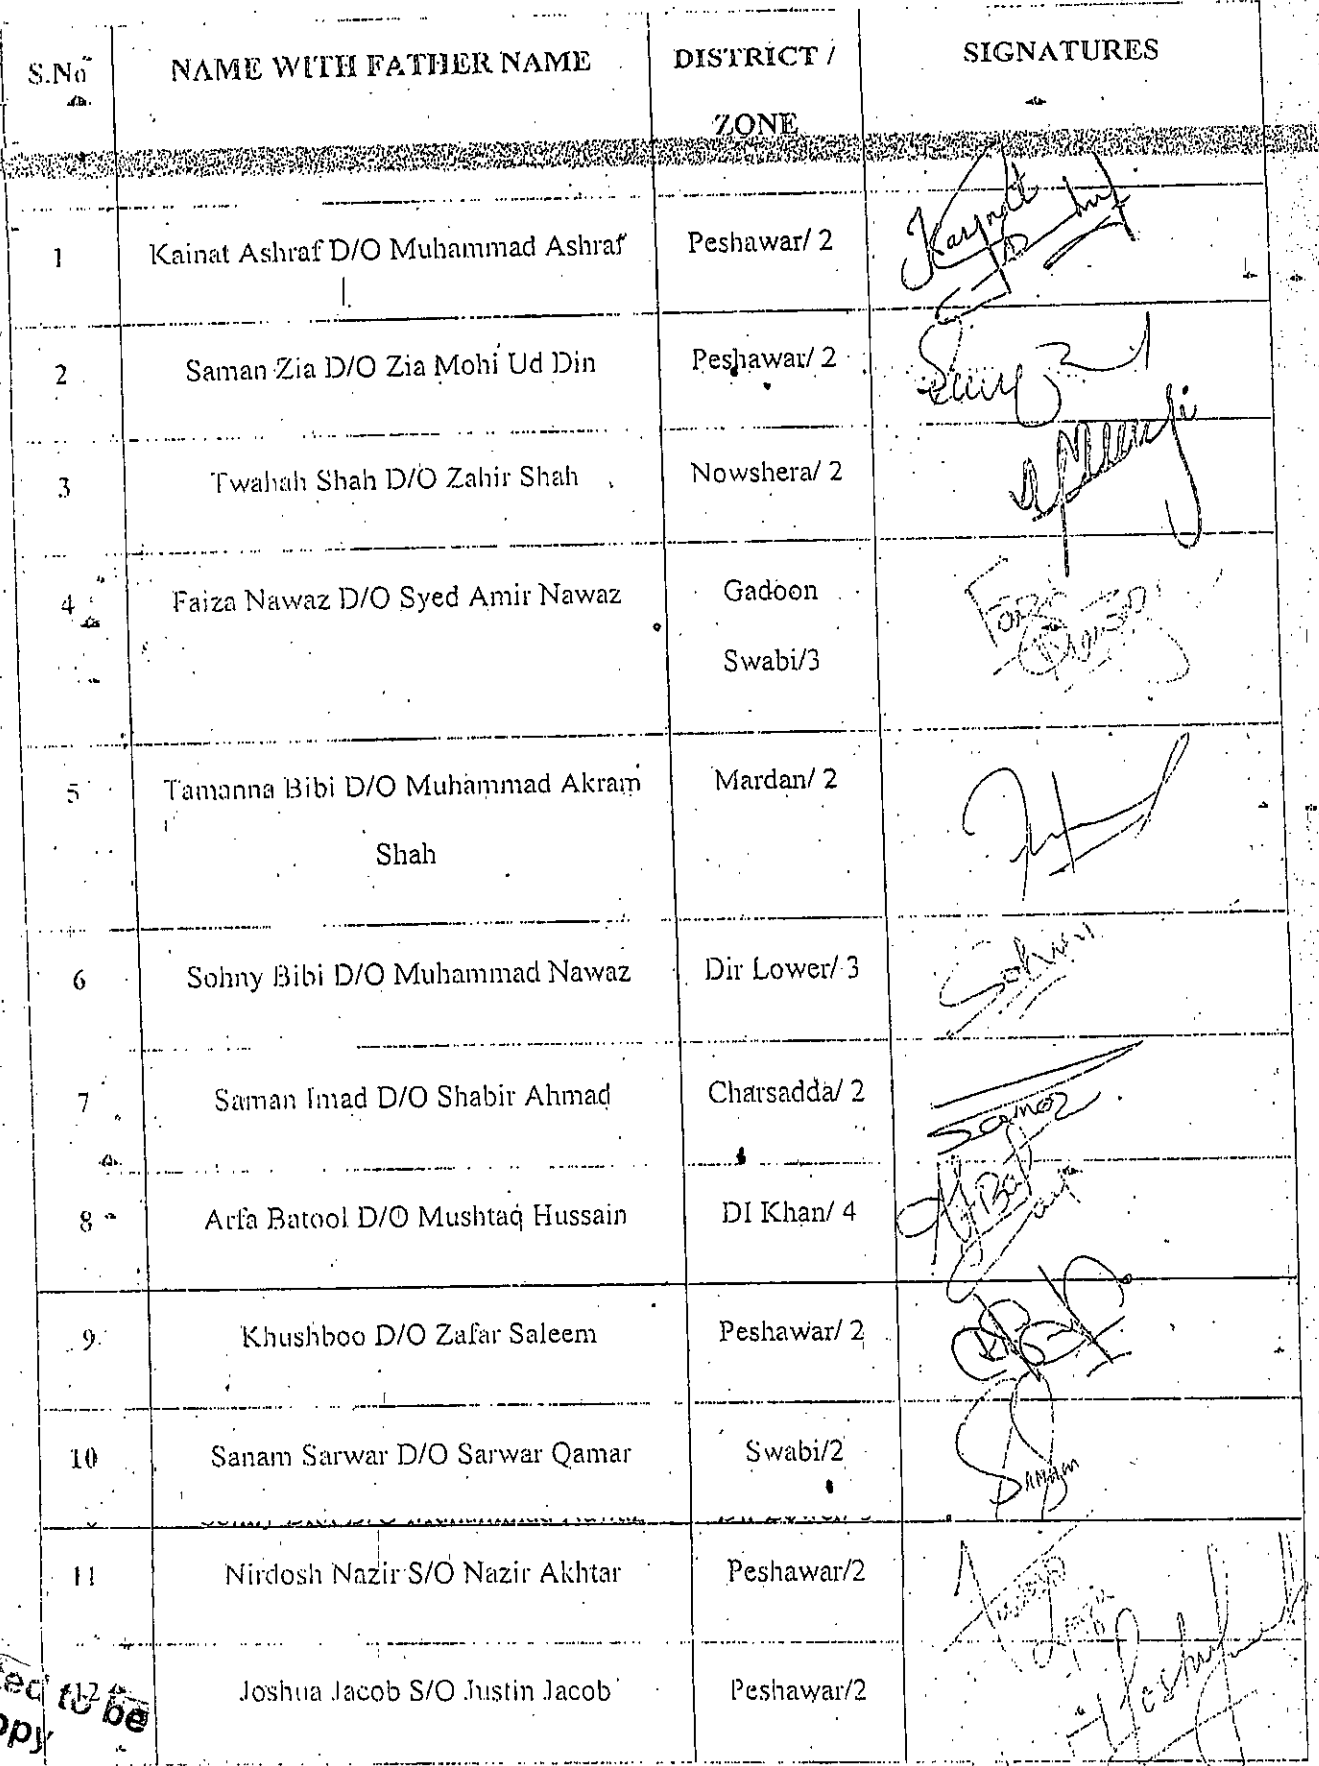 S.No NAME WITH FATHER NAME DISTRICT / SIGNATURES
ZONE
1 Kainat Ashraf D/O Muhammad Ashraf Peshawar/ 2
2 Saman Zia D/O Zia Mohi Ud Din Peshawar/ 2
3 Twahah Shah D/O Zahir Shah Nowshera/ 2
4 Faiza Nawaz D/O Syed Amir Nawaz Gadoon
Swabi/3
5 Tamanna Bibi D/O Muhammad Akram Mardan/ 2
Shah
6 Sohny Bibi D/O Muhammad Nawaz Dir Lower/ 3
7 Saman Imad D/O Shabir Ahmad Charsadda/ 2
8 Arfa Batool D/O Mushtaq Hussain DI Khan/ 4
9 Khushboo D/O Zafar Saleem Peshawar/ 2
10 Sanam Sarwar D/O Sarwar Qamar Swabi/2
Sanam
11 Nirdosh Nazir S/O Nazir Akhtar Peshawar/2
12 Joshua Jacob S/O Justin Jacob Peshawar/2
to be